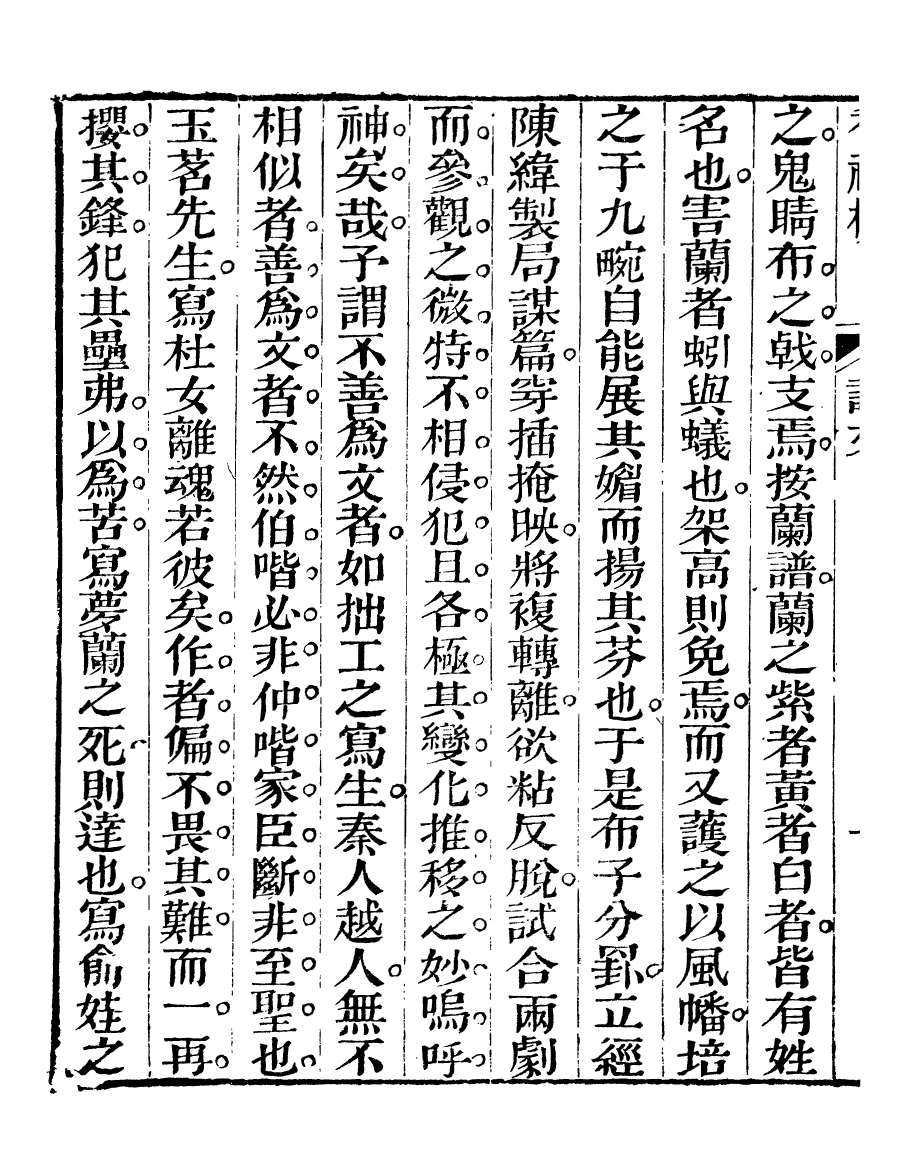 之鬼睛布之戟支焉按蘭譜蘭之紫者黃者白者皆有姓
名也害蘭者蚓與蟻也架高則免焉而又護之以風幡培
之于九畹自能展其媚而揚其芬也于是布子分罫立經
陳緯製局謀篇穿插掩映將複轉離欲粘反脫試合兩劇
而參觀之微特不相侵犯且各極其變化推移之妙嗚呼
神矣哉予謂不善爲文者如拙工之寫生秦人越人無不
相似者善爲文者不然伯喈必非仲喈家臣斷非至聖也
玉茗先生寫杜女離魂若彼矣作者偏不畏其難而一再
攖其鋒犯其壘弗以爲苦寫夢蘭之死則達也寫俞娃之